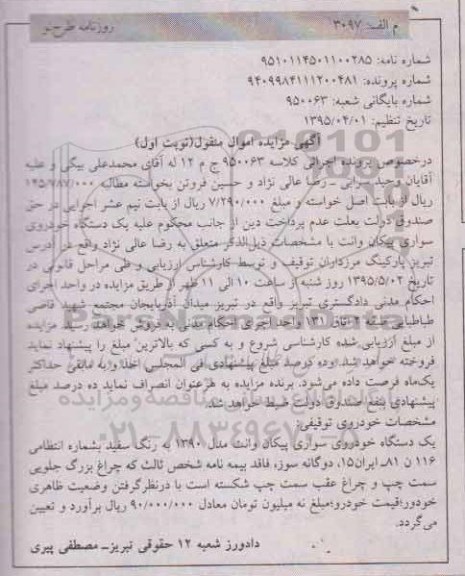 م الف: ۳۰۹۷
روزنامه طرح نو
شماره نامه: ۹۵۱۰۱۱۴۵۰۱۱۰۰۲۸۵
شماره پرونده: ۹۴۰۹۹۸۴۱۱۱۲۰۰۴۸۱
شماره بایگانی شعبه: ۹۵۰۰۶۳
تاریخ تنظیم: ۱۳۹۵/۰۴/۰۱
آگهی مزایده اموال منقول(نوبت اول)
درخصوص پرونده اجرائی کلاسه ۹۵۰۰۶۳ ج م ۱۲ له آقای محمدعلی بیگی و علیه
آقایان وحید سرابی ـ رضا عالی نژاد و حسین فروتن بخواسته مطالبه ۱۴۵/۷۸۷/۰۰۰
ریال از بابت اصل خواسته و مبلغ ۷/۲۹۰/۰۰۰ ریال از بابت نیم عشر اجرایی در حق
صندوق دولت بعلت عدم پرداخت دین از جانب محکوم علیه یک دستگاه خودروی
سواری پیکان وانت با مشخصات ذیل‌الذکر متعلق به رضا عالی نژاد واقع در آدرس
تبریز پارکینگ مرزداران توقیف و توسط کارشناس ارزیابی و طی مراحل قانونی در
تاریخ ۱۳۹۵/۵/۰۲ روز شنبه از ساعت ۱۰ الی ۱۱ ظهر از طریق مزایده در واحد اجرای
احکام مدنی دادگستری تبریز واقع در تبریز میدان آذربایجان مجتمع شهید قاضی
طباطبایی طبقه ۲ اتاق ۱۳۱ واحد اجرای احکام مدنی به فروش خواهد رسید مزایده
از مبلغ ارزیابی شده کارشناسی شروع و به کسی که بالاترین مبلغ را پیشنهاد نماید
فروخته خواهد شد. ده درصد مبلغ پیشنهادی فی المجلس اخذ و به مابقی حداکثر
یک‌ماه فرصت داده می‌شود. برنده مزایده به هر عنوان انصراف نماید ده درصد مبلغ
پیشنهادی بنفع صندوق دولت ضبط خواهد شد.
مشخصات خودروی توقیفی:
یک دستگاه خودروی سواری پیکان وانت مدل ۱۳۹۰ به رنگ سفید بشماره انتظامی
۱۱۶ ن ۸۱ـ ایران۱۵، دوگانه سوز، فاقد بیمه نامه شخص ثالث که چراغ بزرگ جلویی
سمت چپ و چراغ عقب سمت چپ شکسته است با درنظرگرفتن وضعیت ظاهری
خودرو؛قیمت خودرو؛مبلغ نه میلیون تومان معادل ۹۰/۰۰۰/۰۰۰ ریال برآورد و تعیین
می‌گردد.
دادورز شعبه ۱۲ حقوقی تبریزـ مصطفی پیری
ParsNamadData
۰۲۱-۸۸۳۴۹۶۷۰